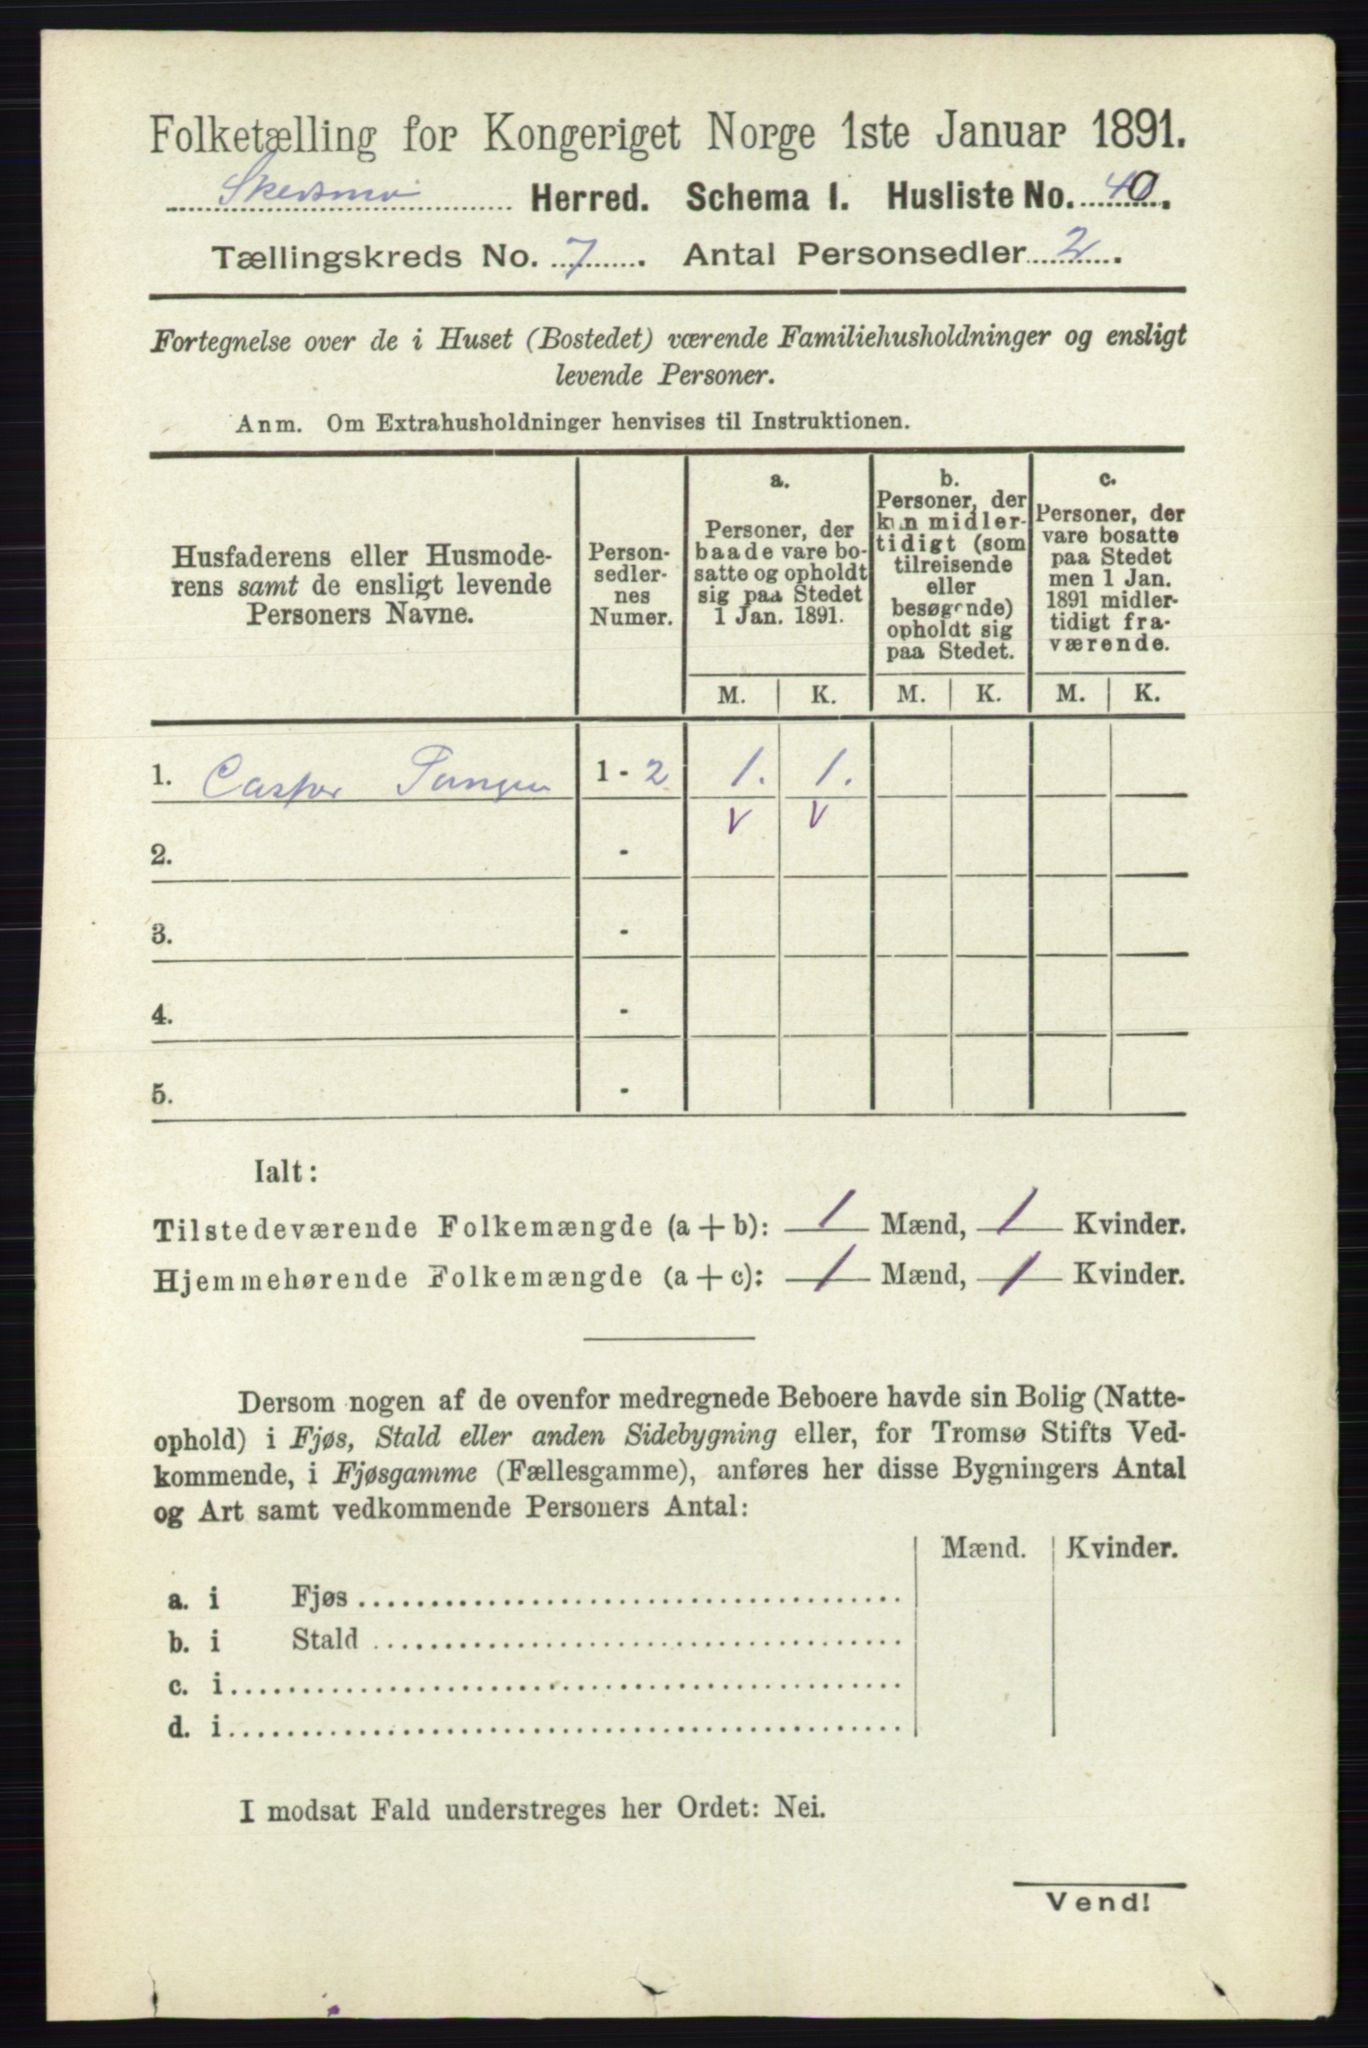 Folketælling for Kongeriget Norge 1ste Januar 1891.
Skedsmo Herred. Schema I. Husliste No. 40.
Tællingskreds No. 7. Antal Personsedler 2.
Fortegnelse over de i Huset (Bostedet) værende Familiehusholdninger og ensligt
levende Personer.
Anm. Om Extrahusholdninger henvises til Instruktionen.
Husfaderens eller Husmode-
rens samt de ensligt levende
Personers Navne.
Person-
sedler-
nes
Numer.
a.
Personer, der
baade vare bo-
satte og opholdt
sig paa Stedet
1 Jan. 1891.
b.
Personer, der
kun midler-
tidigt (som
tilreisende
eller
besøgende)
opholdt sig
paa Stedet.
c.
Personer, der
vare bosatte
paa Stedet
men 1 Jan.
1891 midler-
tidigt fra-
værende.
M. K. M. K. M. K.
1. Casper Tangen 1 - 2 1. 1.
V V
2. -
3. -
4. -
5. -
Ialt:
Tilstedeværende Folkemængde (a + b): 1 Mænd, 1 Kvinder.
Hjemmehørende Folkemængde (a + c): 1 Mænd, 1 Kvinder.
Dersom nogen af de ovenfor medregnede Beboere havde sin Bolig (Natte-
ophold) i Fjøs, Stald eller anden Sidebygning eller, for Tromsø Stifts Ved-
kommende, i Fjøsgamme (Fællesgamme), anføres her disse Bygningers Antal
og Art samt vedkommende Personers Antal:
Mænd. Kvinder.
a. i Fjøs
b. i Stald
c. i
d. i
I modsat Fald understreges her Ordet: Nei.
Vend!